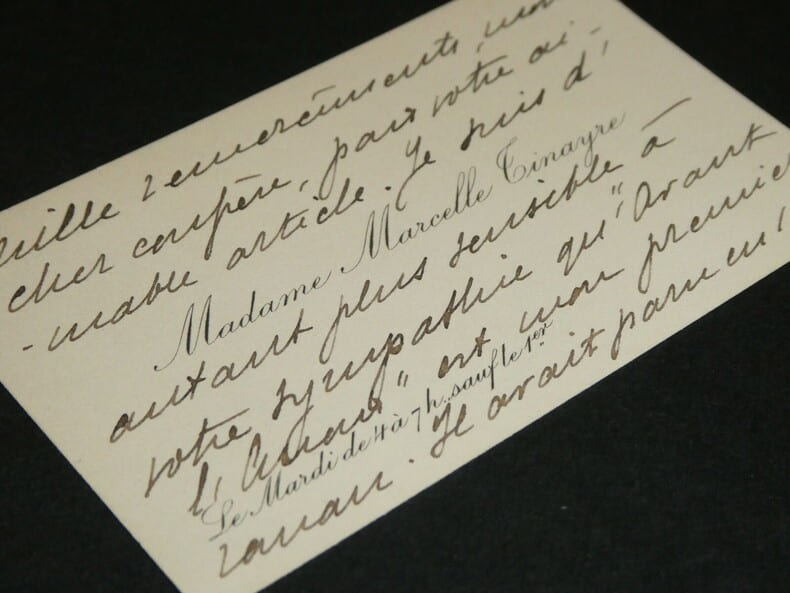 mille remerciments, mon
cher confrère, pour votre ai-
-mable article. Je suis d'
Madame Marcelle Tinayre
autant plus sensible à
votre sympathie qu'"Avant
l'Amour" est mon premier
Le Mardi de 4 à 7 h. sauf le 1er
roman. Il avait paru en